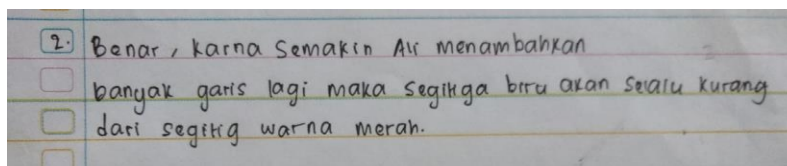 2. Benar, karna semakin Ali menambahkan
banyak garis lagi maka segitiga biru akan selalu kurang
dari segitig warna merah.